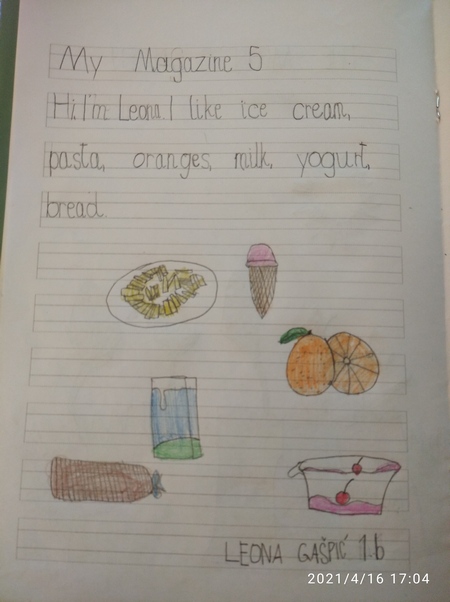 My Magazine 5
Hi. I'm Leona. I like ice cream,
pasta, oranges, milk, yogurt,
bread.
LEONA GAŠPIĆ 1.b
2021/4/16 17:04